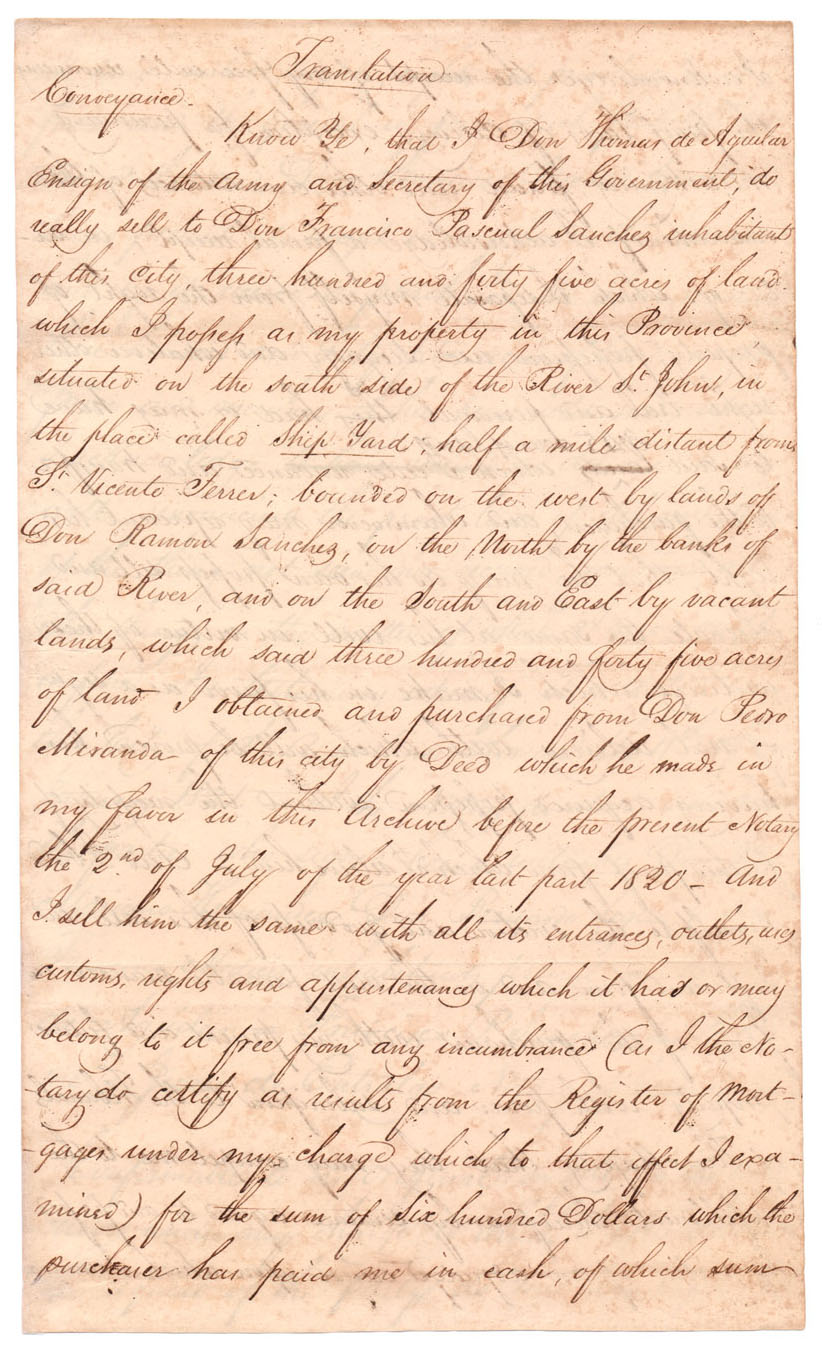 Translation
Conveyance.
Know Ye, that I Don Thomas de Aguilar
Ensign of the Army and Secretary of this Government, do
really sell to Don Francisco Pascual Sanchez inhabitant
of this city, three hundred and forty five acres of land
which I possess as my property in this Province,
situated on the south side of the River St. John, in
the place called Ship Yard, half a mile distant from
St. Vicente Ferrer; bounded on the west by lands of
Don Ramon Sanchez, on the North by the banks of
said River, and on the South and East by vacant
lands, which said three hundred and forty five acres
of land I obtained and purchased from Don Pedro
Miranda of this city by Deed which he made in
my favor in this Archive before the present Notary
the 2nd of July of the year last past 1820 - And
I sell him the same with all its entrances, outlets, uses
customs, rights and appurtenances which it has or may
belong to it free from any incumbrance (as I the No-
-tary do certify as results from the Register of Mort-
-gages under my charge which to that effect I exa-
mined) for the sum of Six hundred Dollars which the
purchaser has paid me in cash, of which sum